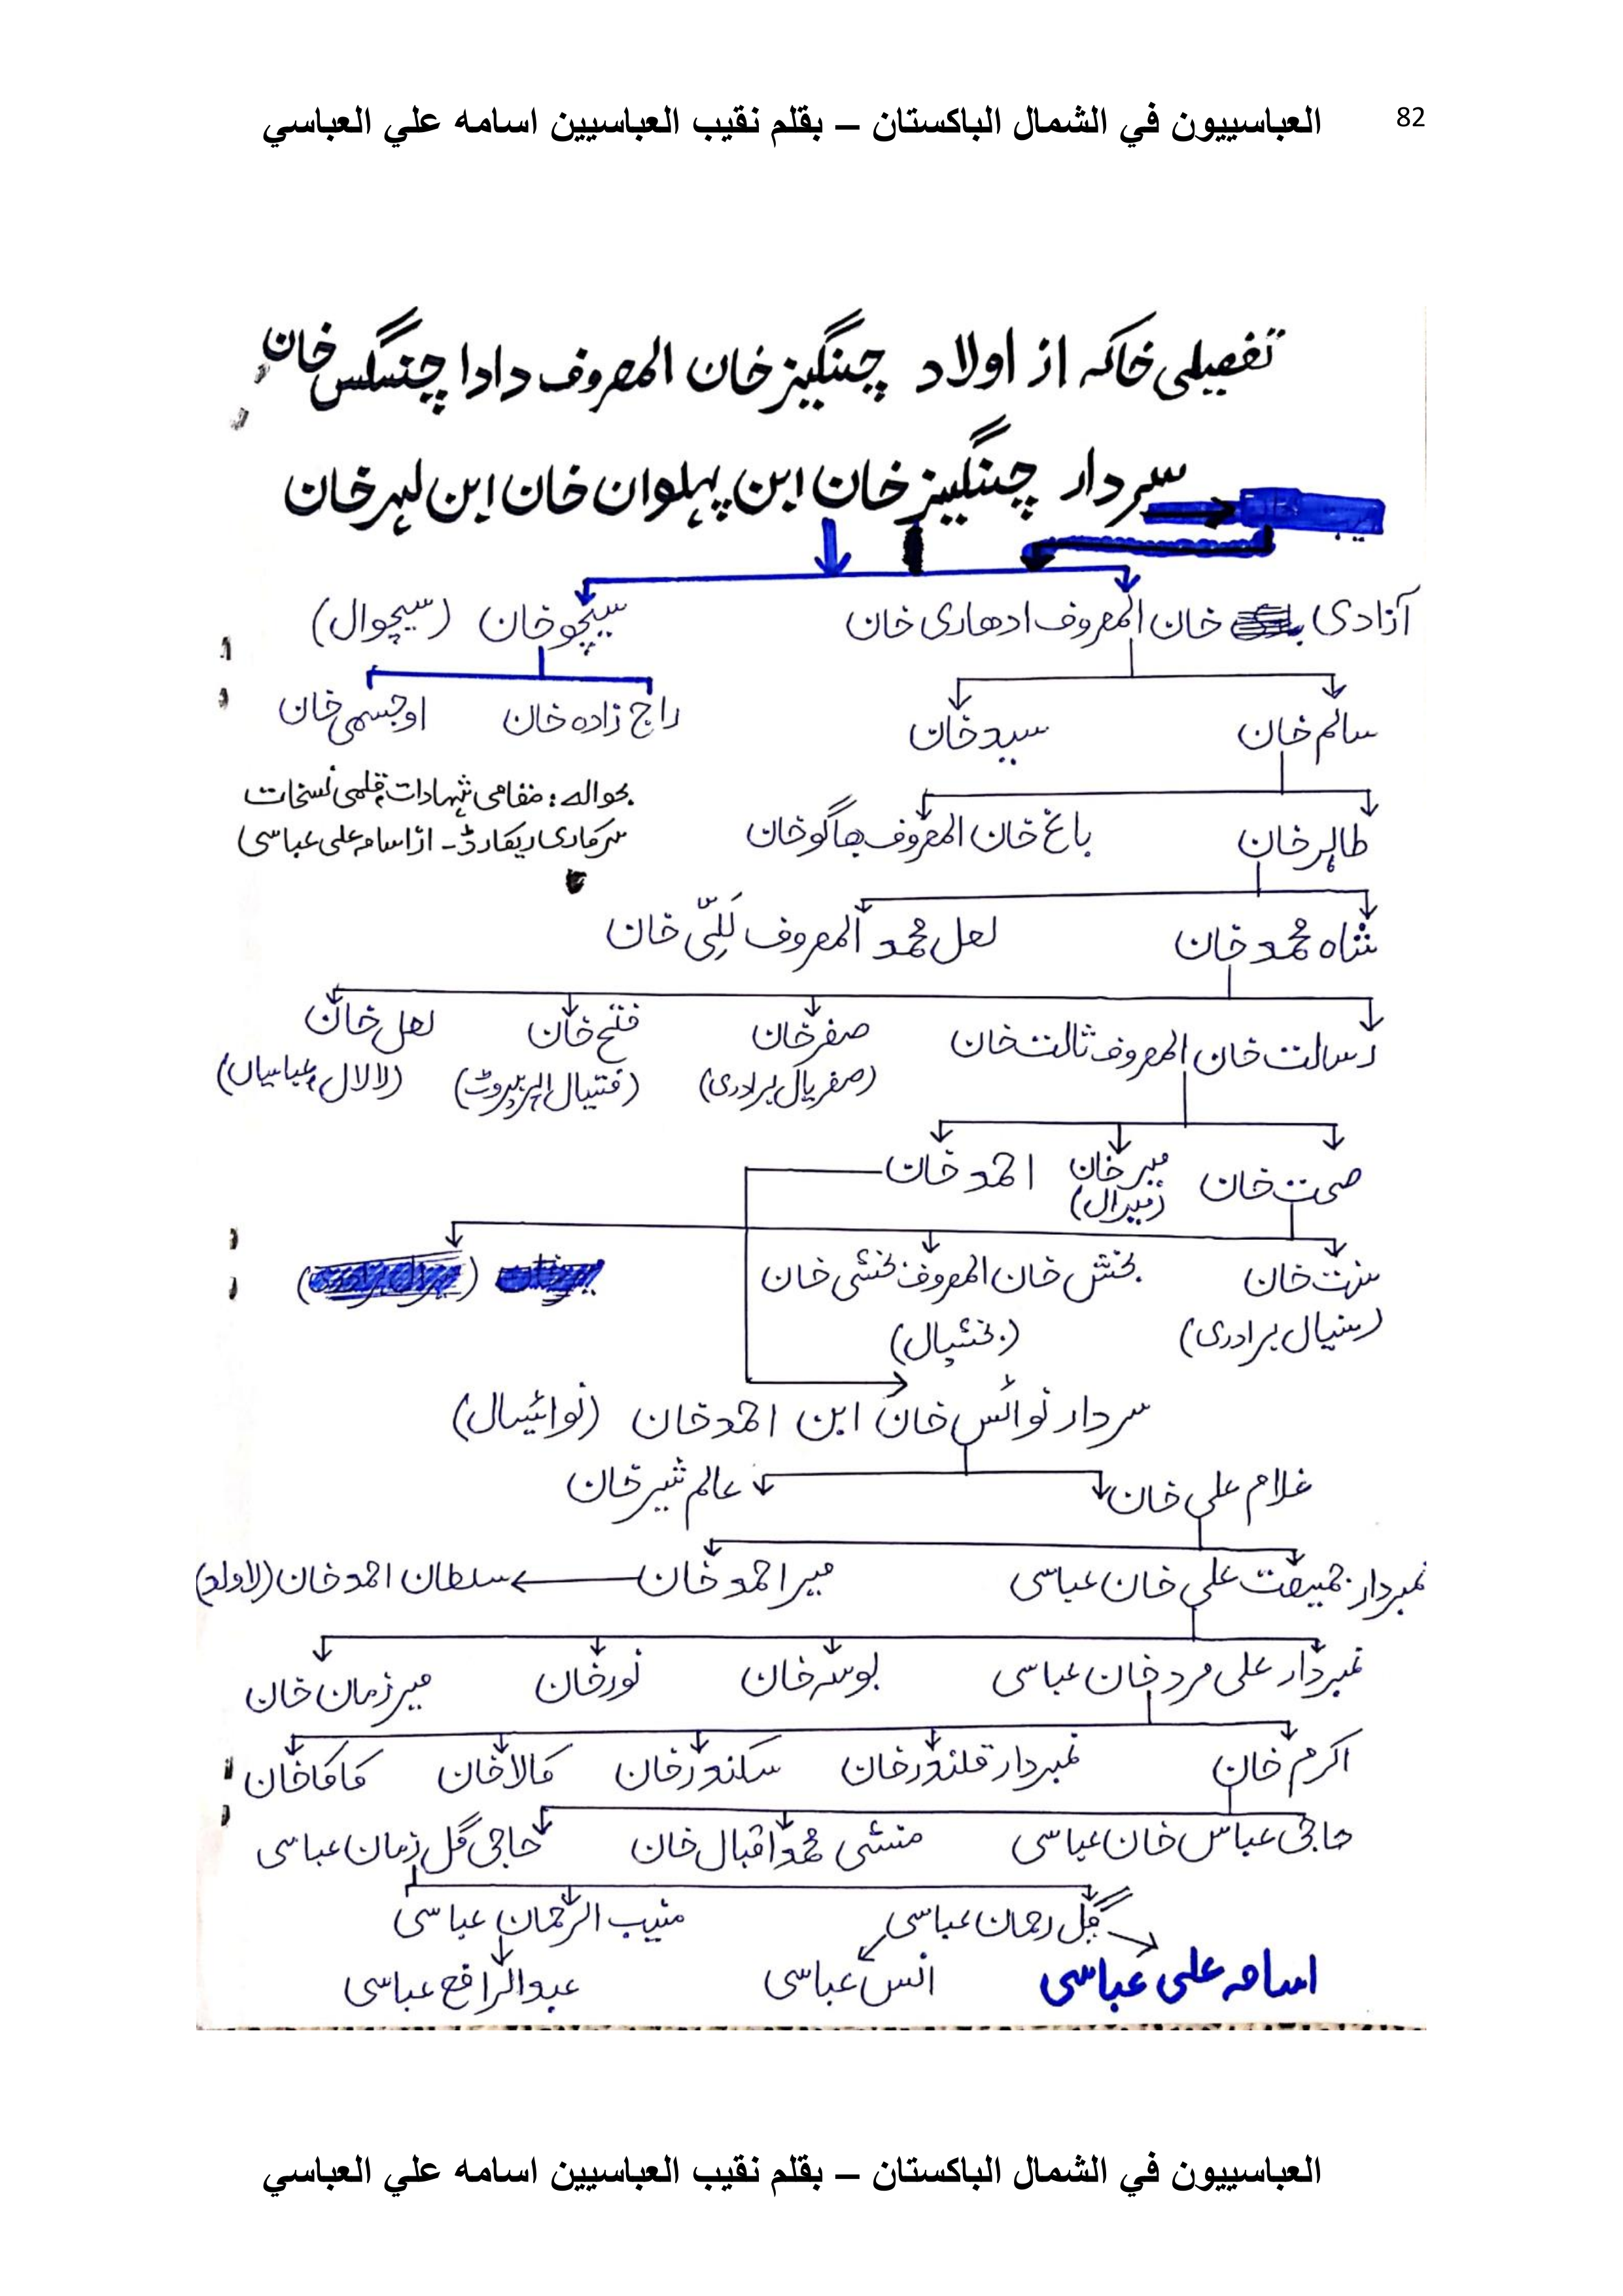 82 العباسييون في الشمال الباكستان – بقلم نقيب العباسيين اسامه علي العباسي
تفصیلی خاکہ از اولاد چنگیز خان المعروف دادا چنگس خان
سردار چنگیز خان ابن پہلوان خان ابن لہر خان
آزادی خان المعروف ادھاری خان سیچو خان (سیچوال)
راج زادہ خان اوجسمی خان
سالم خان سید خان
بحوالہ: مقامی شہادات، قلمی نسخات
سرکاری ریکارڈ۔ از اسامہ علی عباسی
طاہر خان باغ خان المعروف بھاگو خان
شاہ محمد خان لعل محمد المعروف لَلِّی خان
رسالت خان المعروف ثالث خان صفر خان فتح خان لعل خان
(صفریال برادری) (فتیال، بیروٹ) (لالال عباسیاں)
صحت خان میر خان احمد خان
(میرال)
منت خان بخش خان المعروف بخشی خان
(منیال برادری) (بخشیال)
سردار نوائس خان ابن احمد خان (نوائیسال)
غلام علی خان عالم شیر خان
نمبردار جمیعت علی خان عباسی میر احمد خان سلطان احمد خان (لاولد)
نمبردار علی مرد خان عباسی بوستر خان نور خان میر زمان خان
اکرم خان نمبردار قلندر خان سکندر خان کالا خان کاکا خان
حاجی عباس خان عباسی منشی محمد اقبال خان حاجی گل زمان عباسی
گل رحمان عباسی منیب الرحمان عباسی
اسامہ علی عباسی انس عباسی عبدالرافع عباسی
العباسييون في الشمال الباكستان – بقلم نقيب العباسيين اسامه علي العباسي